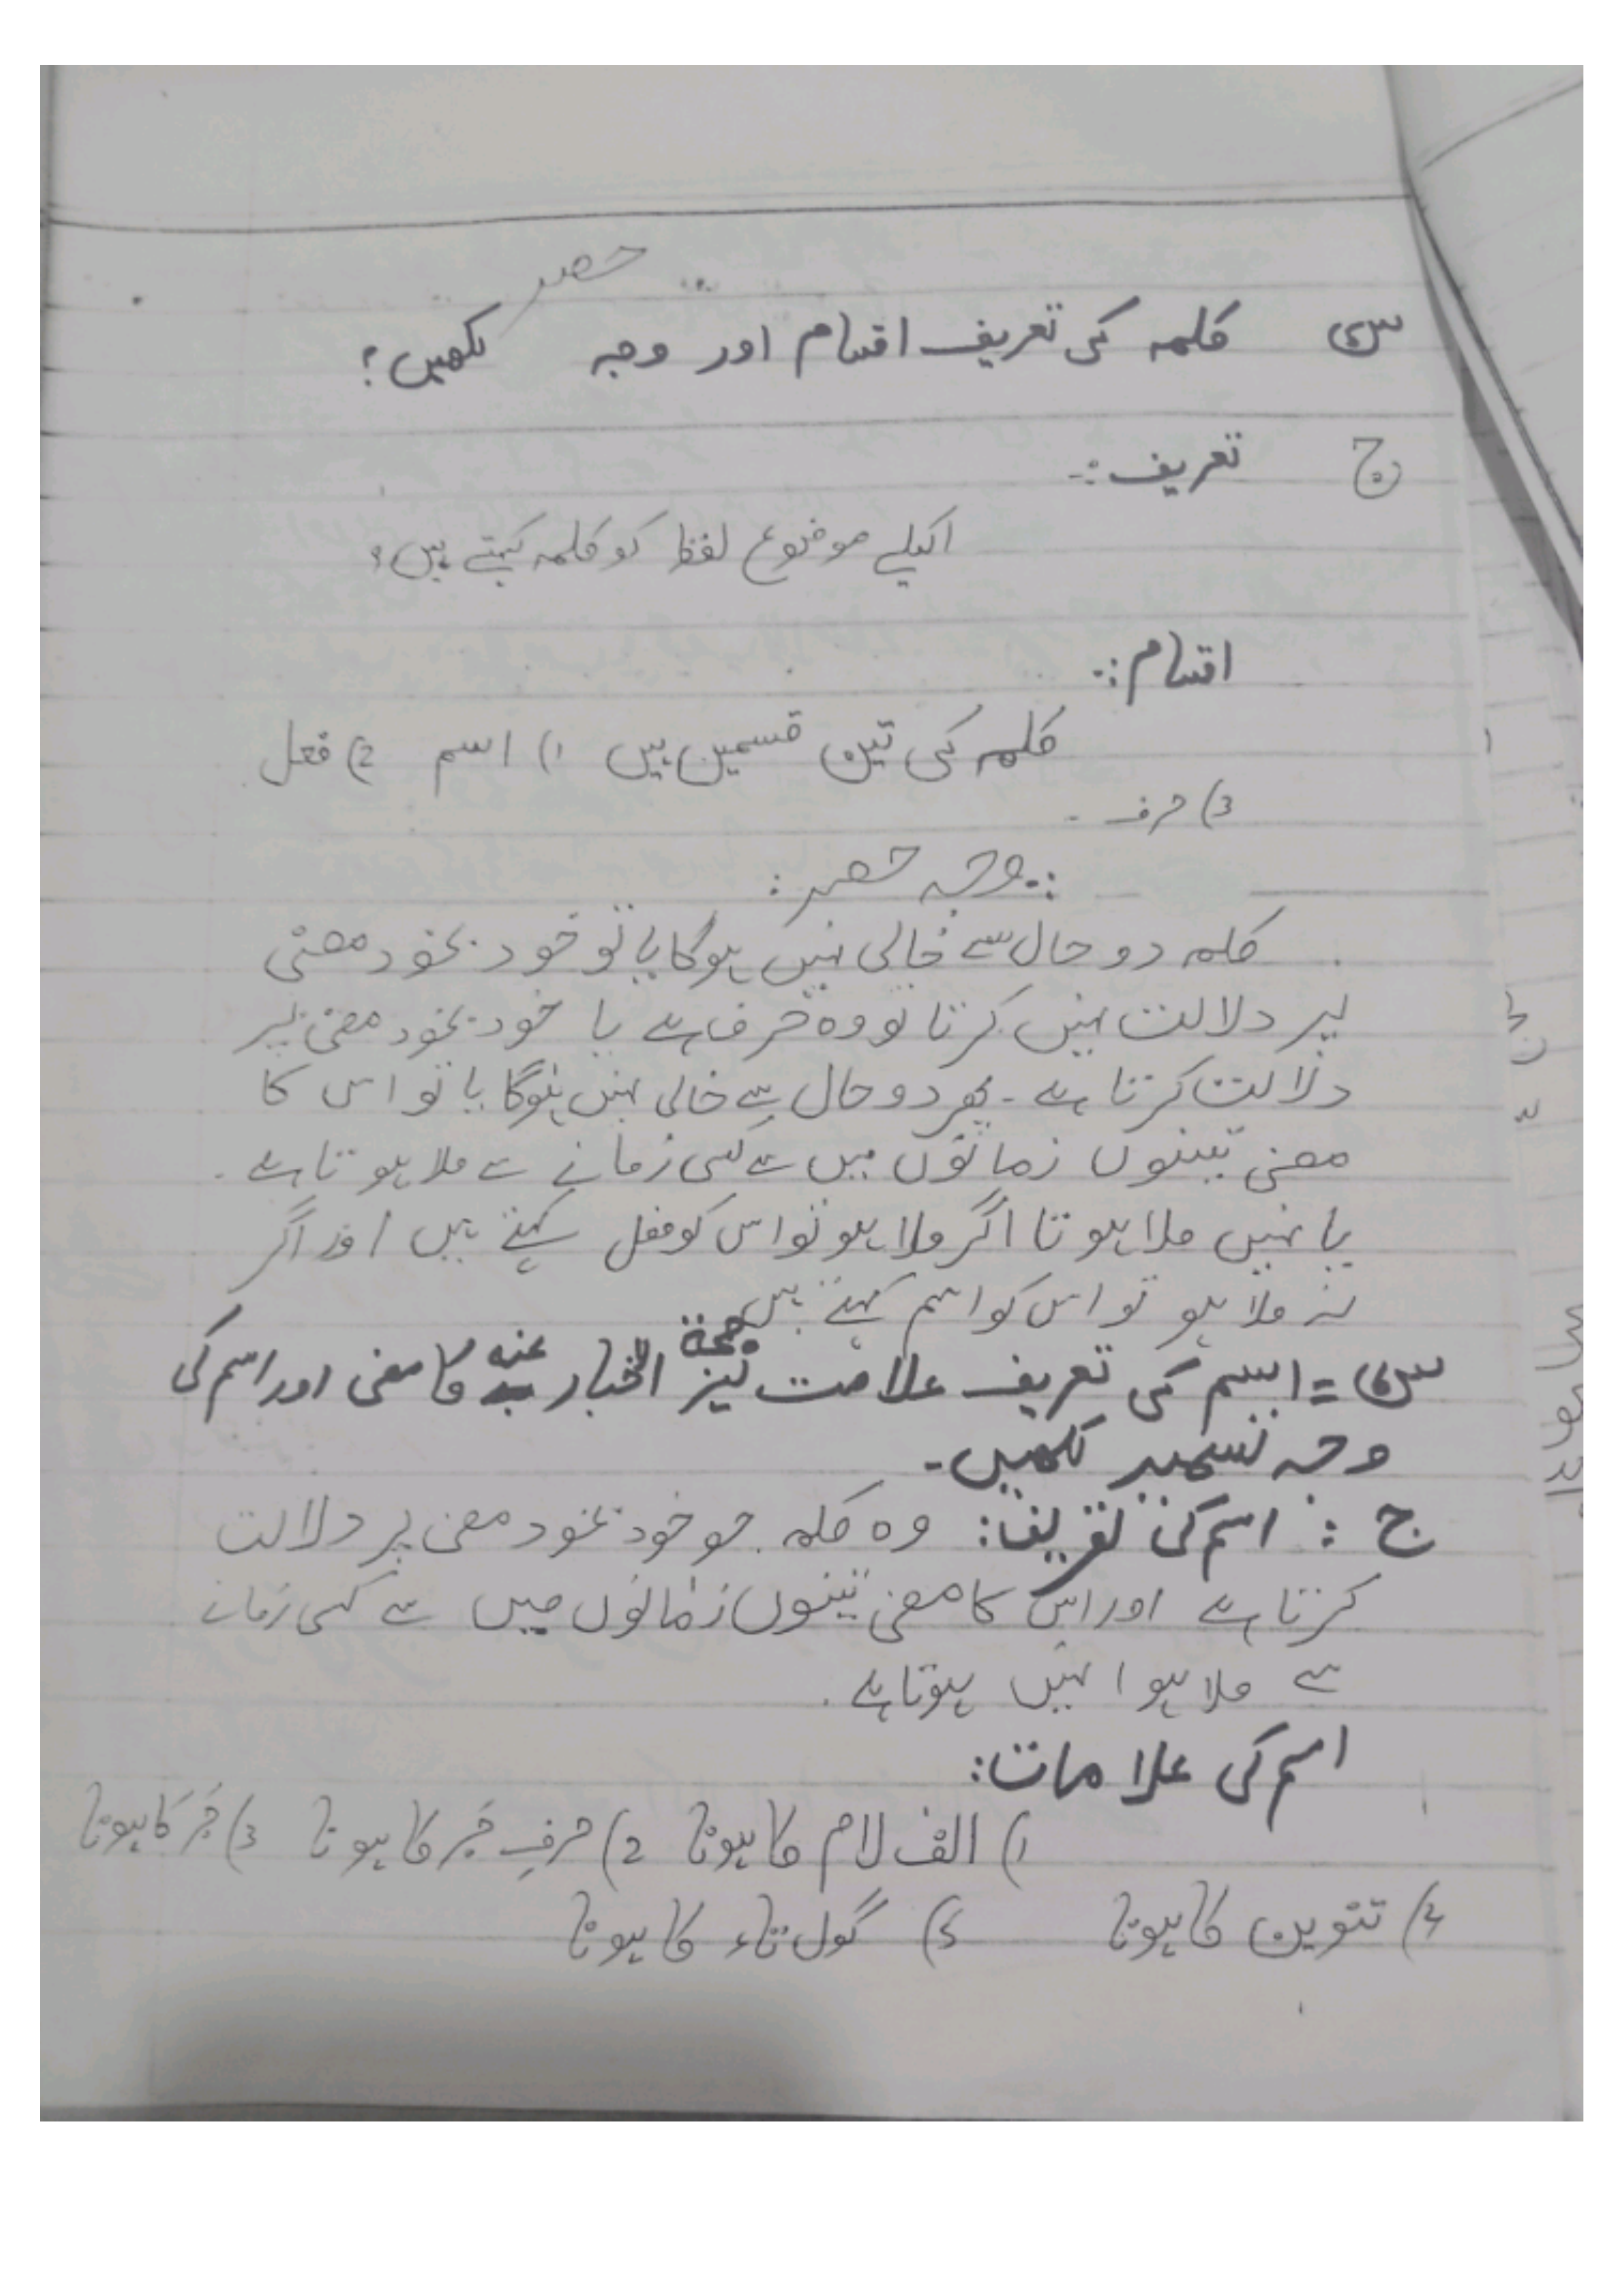 س۵ کلمہ کی تعریف اقسام اور وجہ حصر لکھیں؟
ج تعریف:-
اکیلے موضوع لفظ کو کلمہ کہتے ہیں؟
اقسام:-
کلمہ کی تین قسمیں ہیں 1) اسم 2) فعل
3) حرف -
:-وجہ حصر:
کلمہ دو حال سے خالی نہیں ہوگا یا تو خود بخود معنی
پر دلالت نہیں کرتا تو وہ حرف ہے یا خود بخود معنی پر
دلالت کرتا ہے - پھر دو حال سے خالی نہیں ہوگا یا تو اس کا
معنی تینوں زمانوں میں سے کسی زمانے سے ملا ہوتا ہے -
یا نہیں ملا ہوتا اگر ملا ہو تو اس کو فعل کہتے ہیں اور اگر
نہ ملا ہو تو اس کو اسم کہتے ہیں
س۶ = اسم کی تعریف علامت نیز صحة الاخبار عنہ کا معنی اور اسم کی
وجہ تسمیہ لکھیں -
ج : اسم کی تعریف: وہ کلمہ جو خود بخود معنی پر دلالت
کرتا ہے اور اس کا معنی تینوں زمانوں میں سے کسی زمانے
سے ملا ہوا نہیں ہوتا ہے .
اسم کی علامات:
1) الف لام کا ہونا 2) حرفِ جَر کا ہونا 3) جَر کا ہونا
4) تنوین کا ہونا 5) گول تاء کا ہونا